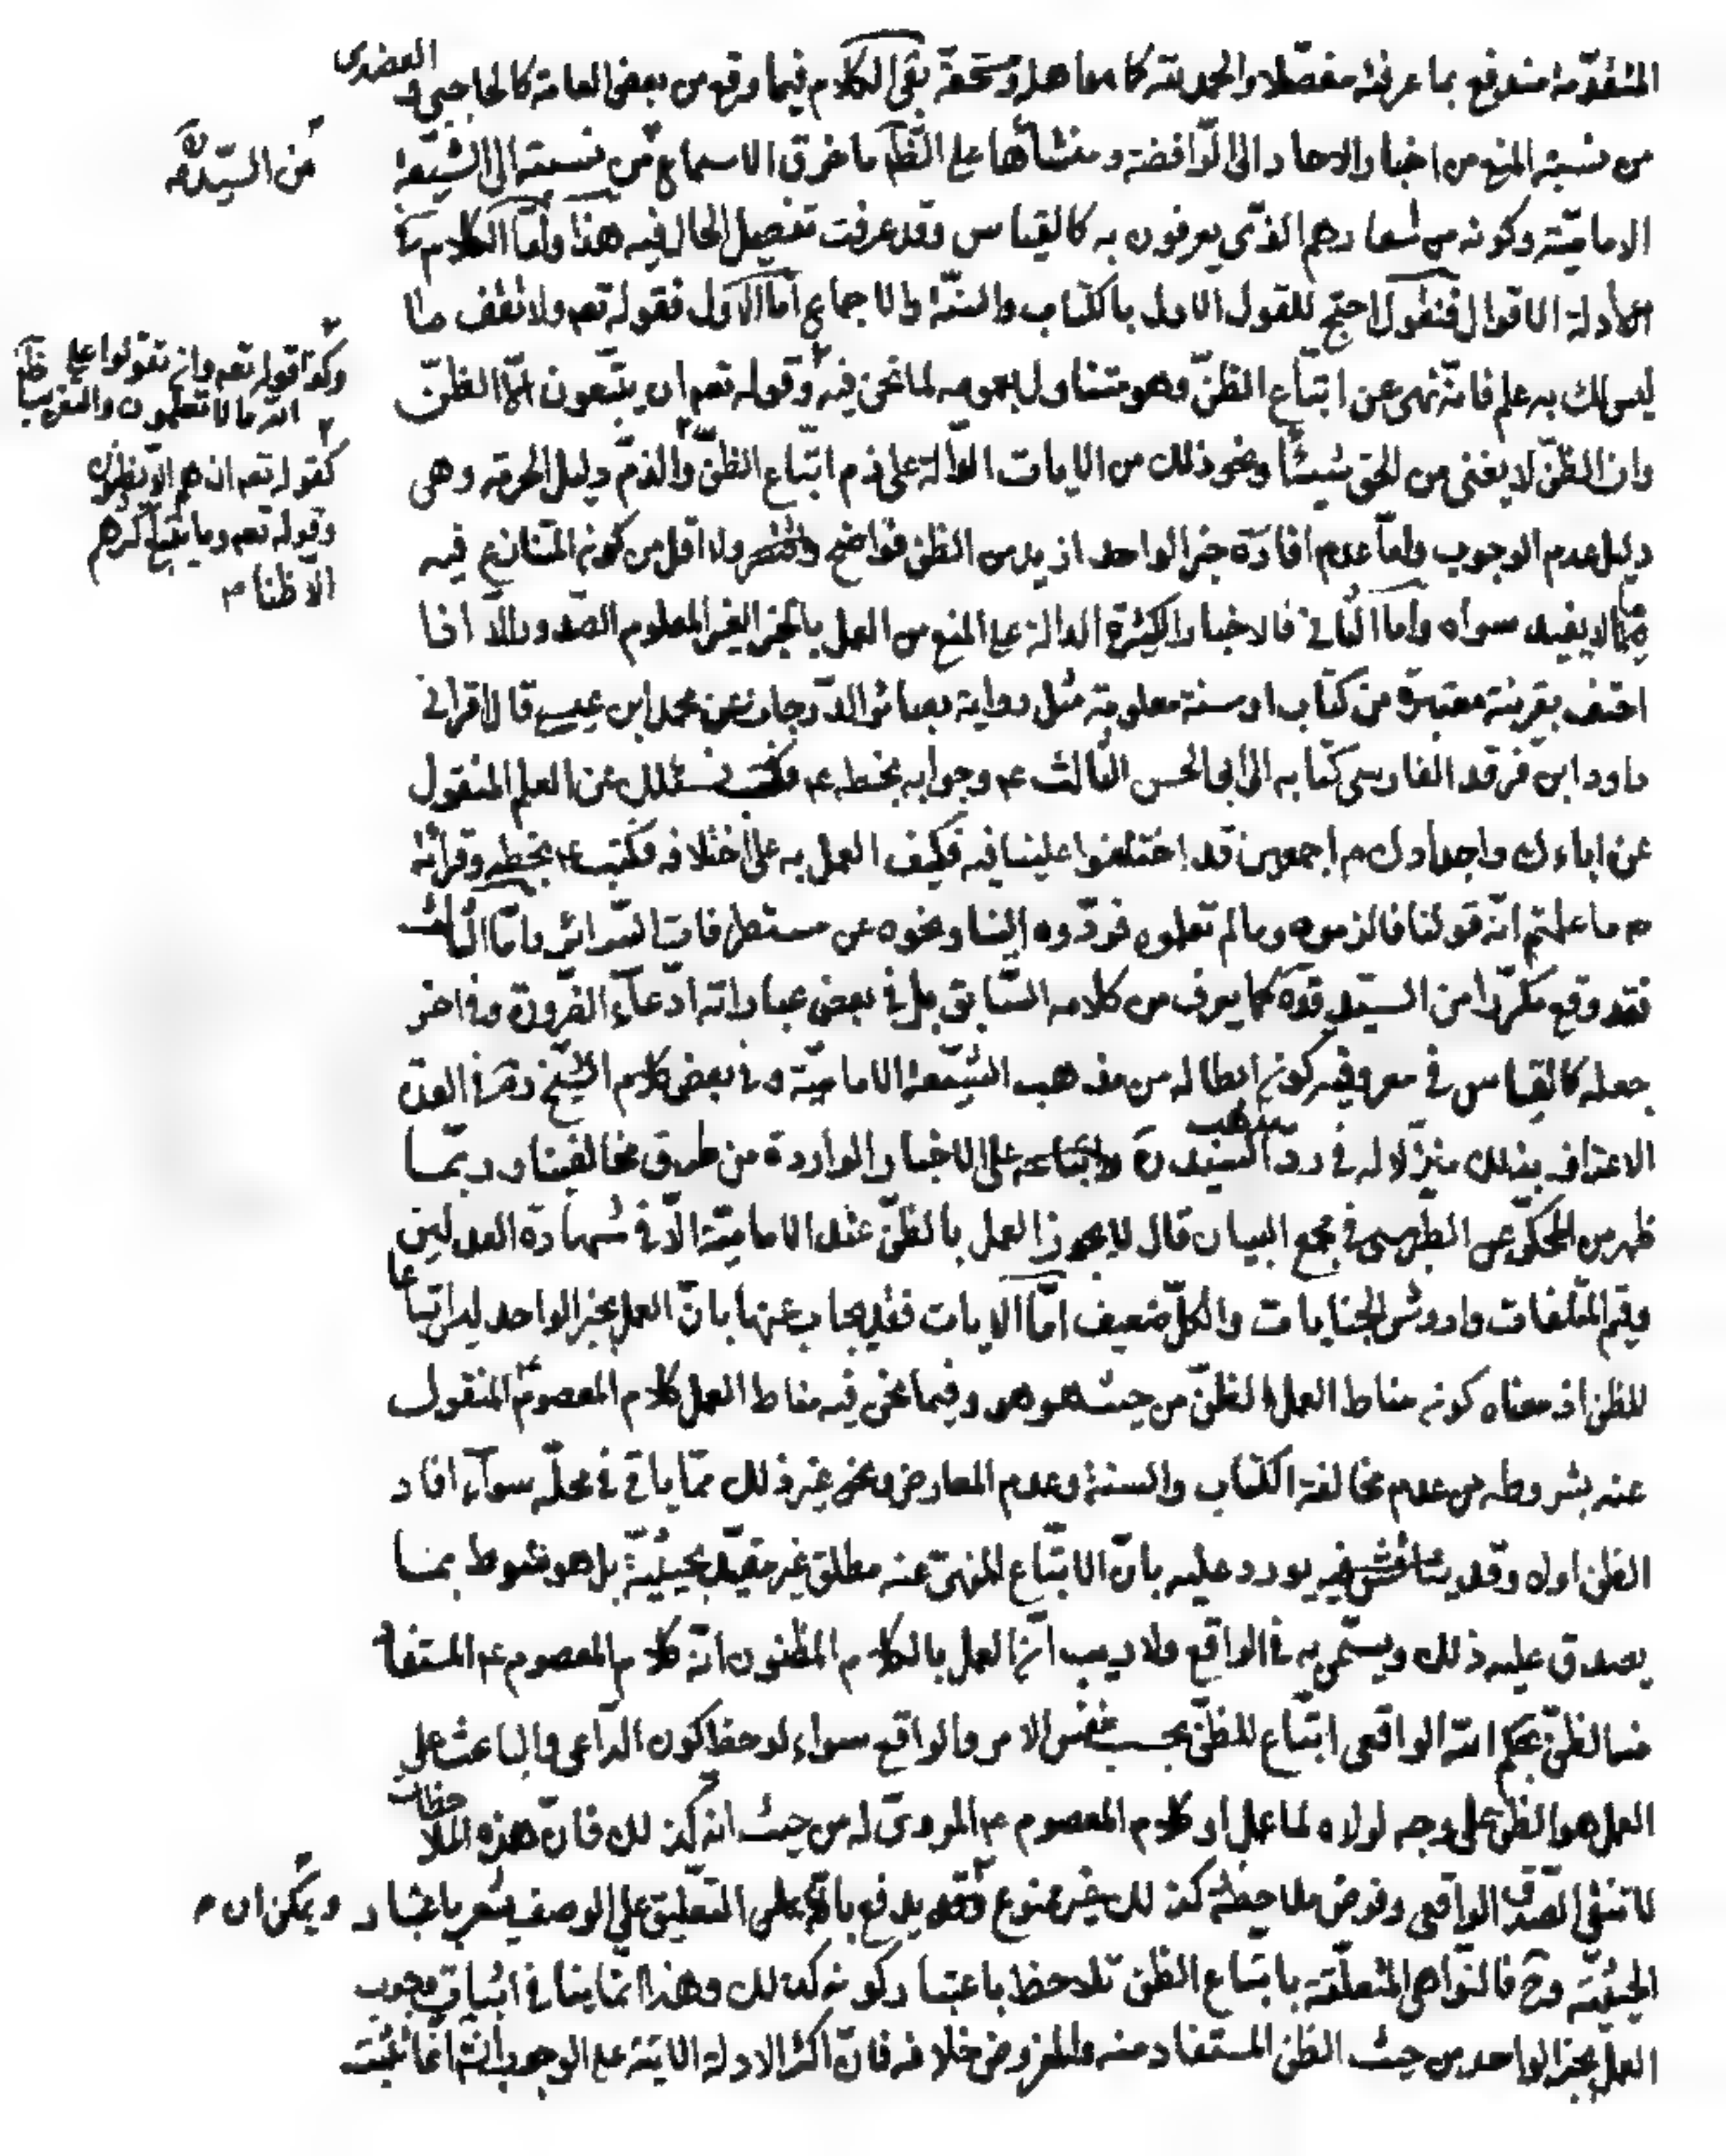 المتقدّمة مندفع بما عرفته مفصّلا والحمد لله كما هو اهله ومستحقه بقى الكلام فيما وقع من بعض العامة كالحاجبي و العضدى
من نسبة المنع من اخبار الاحاد الى الرّوافضة ومنشأها على الظّ ما خرق الاسماع من نسبته الى الشّيعة
من السيّد ره
الاماميّة وكونه من شعارهم الذّى يعرفون به كالقياس وقد عرفت تفصيل الحال فيه هذا وامّا الكلام في
ادلة الاقوال فنقول احتج للقول الاول بالكتاب والسنّة والاجماع امّا الاول فقوله تعم ولا تقف ما
ليس لك به علم فانّه نهى عن اتباع الظنّ وهو متناول بعمومه لما نحن فيه وقوله تعم ان يتبعون الّا الظنّ
وكذا قوله تعم وان تقولوا على
الله ما لا تعلمون والتقريب
وان الظنّ لا يغنى من الحق شيئًا ونحو ذلك من الايات الدّالة على ذم اتباع الظنّ والذمّ دليل الحرمة وهى
كقوله تعم ان هم الّا يظنون
وقوله تعم وما يتبع اكثرهم
الّا ظنا م
دليل عدم الوجوب وامّا عدم افادة خبر الواحد ازيد من الظن فواضح ولا اقل من كون المتنازع فيه
ممّا لا يفيد سواه وامّا الثّانى فالاخبار الكثيرة الدالة على المنع من العمل بالخبر الغير المعلوم الصّدور الّا اذا
احتف بقرينة معتبرة من كتاب او سنة معلومة مثل رواية بصائر الدّرجات عن محمد ابن عيسى قال اقرانى
داود ابن فرقد الفارسى كتابه الى ابى الحسن الثالث عم وجوابه بخطه عم فكتب نسئلك عن العلم المنقول
عن اباءك واجدادك م اجمعين قد اختلفوا علينا فيه فكيف العمل به على اختلافه فكتب عم بخطه وقرأته
م ما علمتم انّه قولنا فالزموه وما لم تعلموه فردّوه الينا ونحوه عن مستطرفات السّرائر وامّا الثالث
فقد وقع مكرّرا من السيّد قده كما يعرف من كلامه السّابق بل في بعض عباراته ادّعاء الضّرورة وفى اخر
جعله كالقياس في معروفيّة كون ابطاله من مذهب الشّيعة الاماميّة وفى بعض كلام الشّيخ ره في العدة
الاعتراف بذلك منزّلا له في ردّ السّيد ره على الاخبار الواردة من طرق مخالفينا وربّما
مذهب
ظهر من المحكىّ عن الطبرسى في مجمع البيان قال لا يجوز العمل بالظنّ عند الاماميّة الّا في شهادة العدلين
وقيم المتلفات واروش الجنايات والكلّ ضعيف امّا الايات فقد يجاب عنها بانّ العمل بخبر الواحد ليس اتباعا
للظن اذ معناه كونه مناط العمل الظنّ من حيث هو هو وفيما نحن فيه مناط العمل كلام المعصوم عم المنقول
عنه بشروطه من عدم مخالفة الكتاب والسنة وعدم المعارض ونحو غير ذلك ممّا ياتى في محلّه سواء افاد
الظن اولا وقد يورد عليه بانّ الاتباع المنهىّ عنه مطلق غير مقيّد بحيثيّة بل هو منوط بما
يصدق عليه ذلك ويسمّى به في الواقع ولا ريب انّ العمل بالكلام المظنون انّه كلام المعصوم عم المستفاد
منه الظنّ بحكم الله الواقعى اتباع للظنّ بحسب نفس الامر والواقع سواء لوحظ كون الدّاعى والباعث على
العمل هو الظن على وجه لولاه لما عمل او كلام المعصوم عم المروىّ له من حيث انه كذلك فانّ هذه الملاحظات
لا تنفى الصّدق الواقعى وفرض ملاحظة كذلك غير ممنوع ويمكن ان م يدفع بانّ التّعليق على الوصف يشعر باعتبار
الحيثيّة وح فالنّواهى المتعلّقة باتباع الظن تلاحظ باعتبار كونه كذلك وهذا انّما ينافى اثبات وجوب
العمل بخبر الواحد من حيث الظن المستفاد منه والمفروض خلافه فانّ اكثر الادلة الاتية على الوجوب انّما تثبت